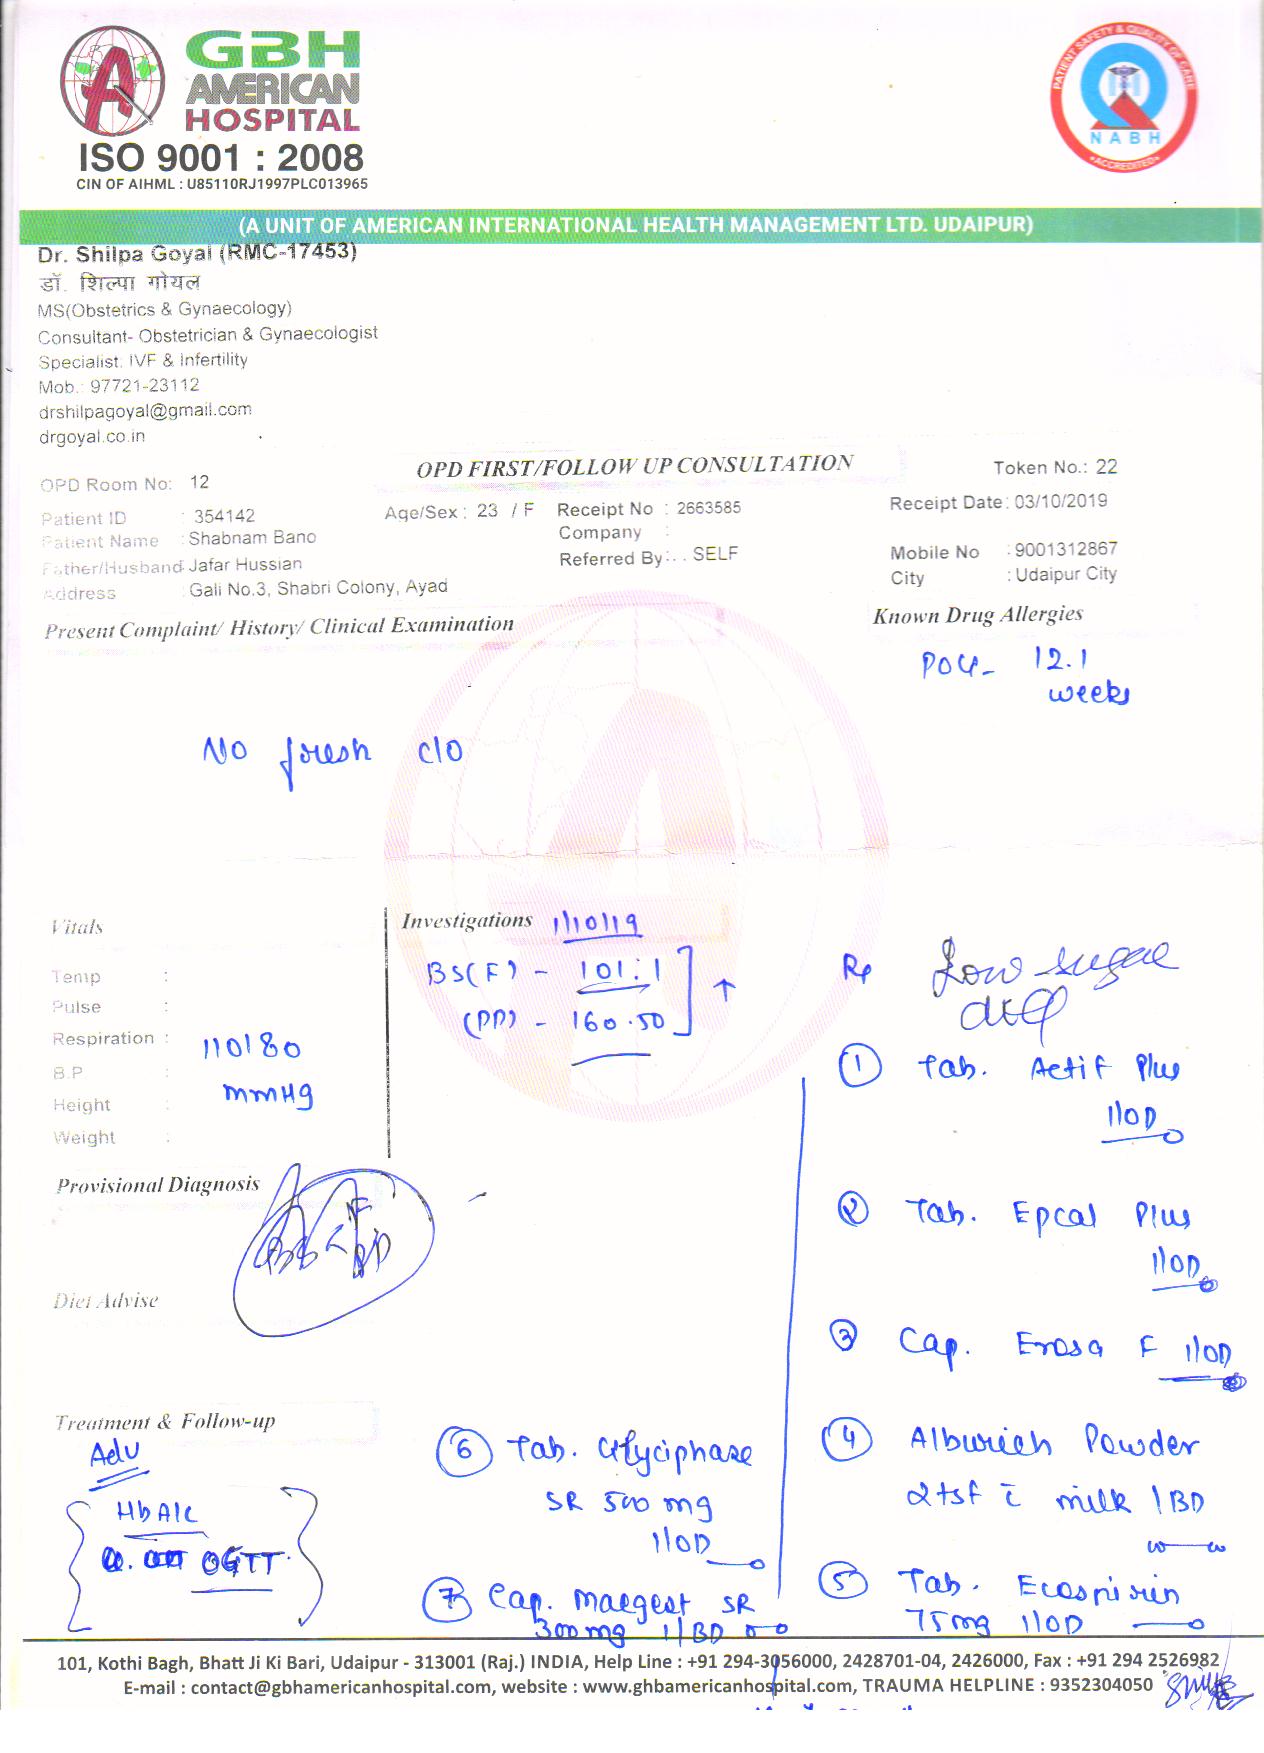 GBH
AMERICAN
HOSPITAL
ISO 9001 : 2008
CIN OF AIHML : U85110RJ1997PLC013965
PATIENT SAFETY & QUALITY OF CARE
NABH
ACCREDITED
(A UNIT OF AMERICAN INTERNATIONAL HEALTH MANAGEMENT LTD. UDAIPUR)
Dr. Shilpa Goyal (RMC-17453)
डॉ. शिल्पा गोयल
MS(Obstetrics & Gynaecology)
Consultant- Obstetrician & Gynaecologist
Specialist. IVF & Infertility
Mob.: 97721-23112
drshilpagoyal@gmail.com
drgoyal.co.in
OPD FIRST/FOLLOW UP CONSULTATION
Token No.: 22
OPD Room No: 12
Patient ID : 354142 Age/Sex : 23 / F Receipt No : 2663585 Receipt Date : 03/10/2019
Patient Name : Shabnam Bano Company :
Father/Husband: Jafar Hussian Referred By: . . SELF Mobile No : 9001312867
Address : Gali No.3, Shabri Colony, Ayad City : Udaipur City
Present Complaint/ History/ Clinical Examination Known Drug Allergies
POG- 12.1
weeks
No fresh c/o
Vitals
Temp :
Pulse :
Respiration :
B.P :
110/80
mmHg
Height :
Weight :
Investigations 1/10/19
BS(F) - 101.1
(PP) - 160.50 ↑
Rp Low sugar
diet
① Tab. Actif Plus
1/OD
② Tab. Epcal Plus
1/OD
③ Cap. Erosa F 1/OD
④ Alburich Powder
2tsf c̄ milk 1BD
⑤ Tab. Ecospirin
75mg 1/OD
Provisional Diagnosis
Diet Advise
Treatment & Follow-up
Adv
HbA1C
OGTT
⑥ Tab. Glyciphase
SR 500 mg
1/OD
⑦ Cap. Maegest SR
300mg 1/BD
101, Kothi Bagh, Bhatt Ji Ki Bari, Udaipur - 313001 (Raj.) INDIA, Help Line : +91 294-3056000, 2428701-04, 2426000, Fax : +91 294 2526982
E-mail : contact@gbhamericanhospital.com, website : www.ghbamericanhospital.com, TRAUMA HELPLINE : 9352304050